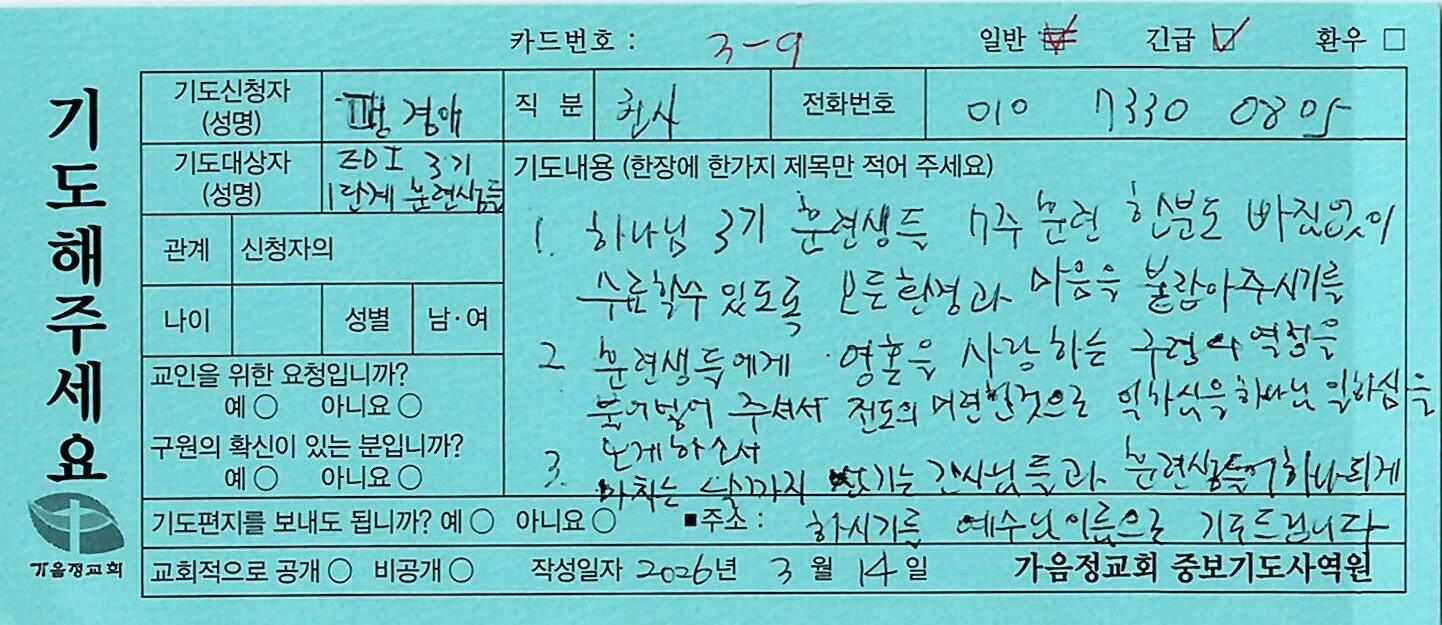 카드번호 : 3-9 일반 긴급 환우
기도해주세요
기도신청자 (성명) 경애 직 분 권사 전화번호 010 7330 0805
기도대상자 (성명) EDI 3기 1단계 훈련생들
기도내용 (한장에 한가지 제목만 적어 주세요)
1. 하나님 3기 훈련생들 7주 훈련 한분도 빠짐없이
수료할수 있도록 모든환경과 마음을 붙잡아주시기를
2 훈련생들에게 영혼을 사랑하는 구령의 열정을
불어넣어 주셔서 전도의 하나님 일하심을
보게하소서
3. 마치는 날까지 섬기는 간사님들과 훈련생들이 하나되게
하시기를 예수님이름으로 기도드립니다
관계 신청자의
나이 성별 남·여
교인을 위한 요청입니까?
예 아니요
구원의 확신이 있는 분입니까?
예 아니요
기도편지를 보내도 됩니까? 예 아니요 ■주소 :
교회적으로 공개 비공개 작성일자 2026년 3월 14일 가음정교회 중보기도사역원
가음정교회